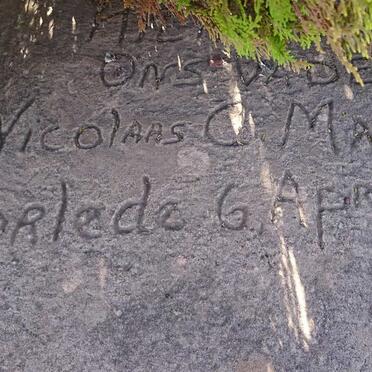 ONS VADE
Nicolaas C. Ma
orlede 6, Apr